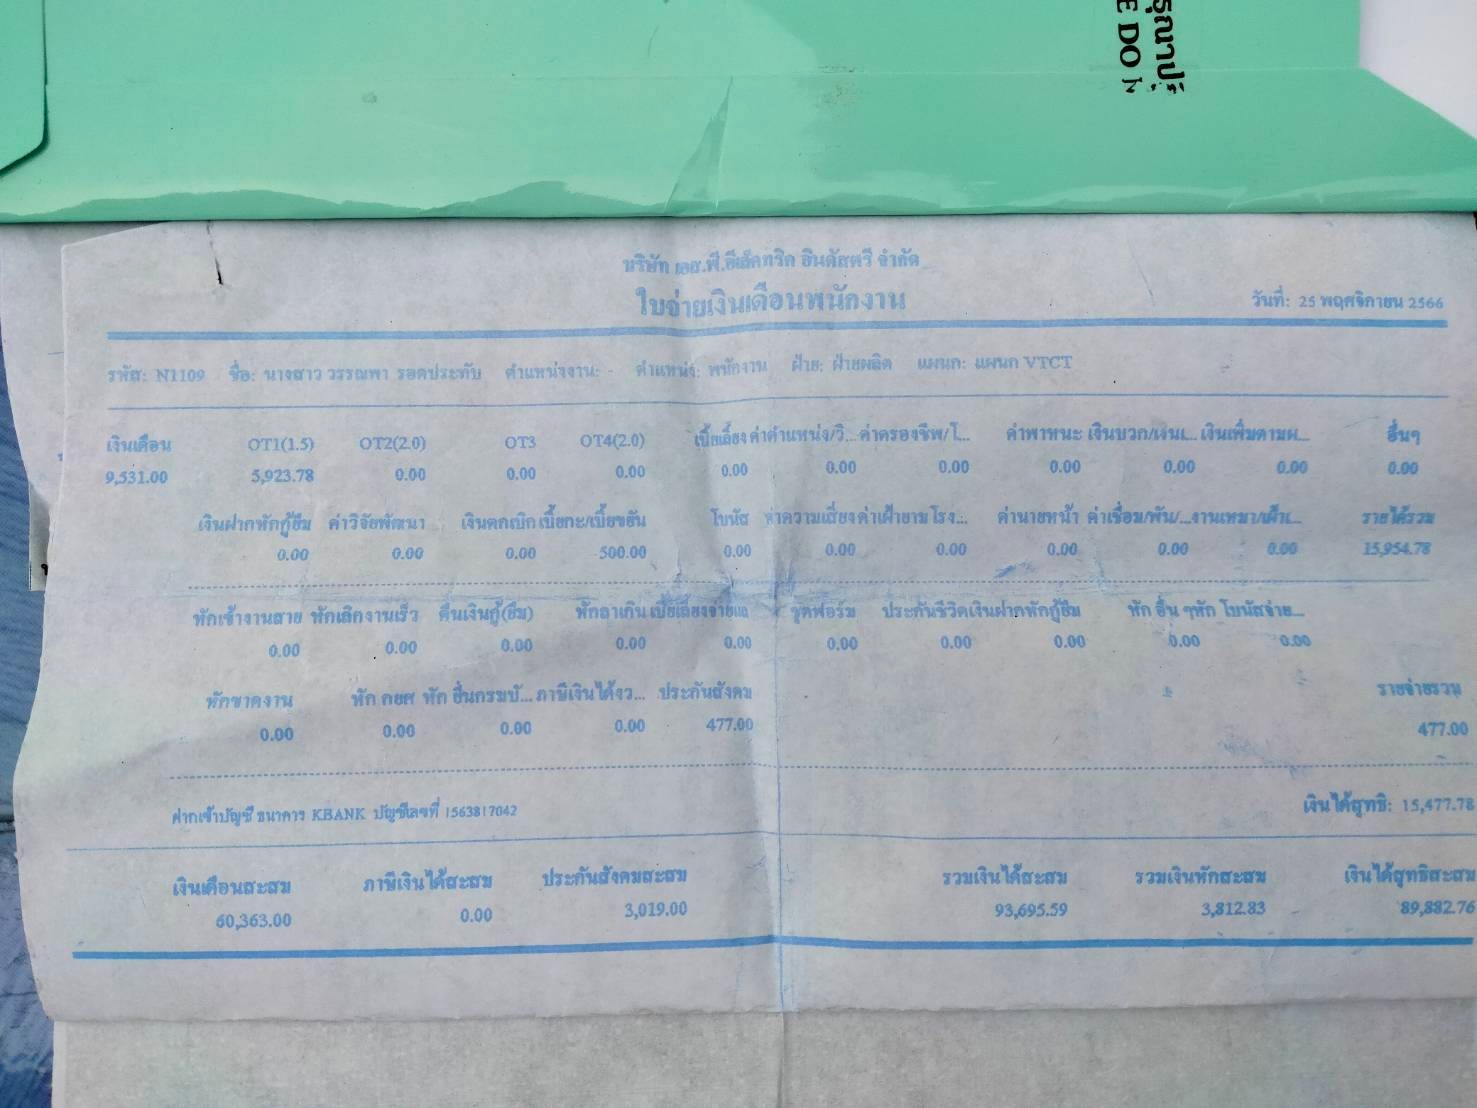 รุณาปุ
E DO N
บริษัท เอส.พี.อีเล็คทริค อินดัสตรี จำกัด
ใบจ่ายเงินเดือนพนักงาน
วันที่: 25 พฤศจิกายน 2566
รหัส: N1109 ชื่อ: นางสาว วรรณพา รอดประทับ ตำแหน่งงาน: - ตำแหน่ง: พนักงาน ฝ่าย: ฝ่ายผลิต แผนก: แผนก VTCT
เงินเดือน OT1(1.5) OT2(2.0) OT3 OT4(2.0) เบี้ยเลี้ยง ค่าตำแหน่ง/วิ... ค่าครองชีพ/โ... ค่าพาหนะ เงินบวก/เงินเ... เงินเพิ่มตามผ... อื่นๆ
9,531.00 5,923.78 0.00 0.00 0.00 0.00 0.00 0.00 0.00 0.00 0.00 0.00
เงินฝากหักกู้ยืม ค่าวิจัยพัฒนา เงินตกเบิก เบี้ยกะ/เบี้ยขยัน โบนัส ค่าความเสี่ยง ค่าเฝ้ายามโรง... ค่านายหน้า ค่าเชื่อม/พัน/... งานเหมา/เฝ้าเ... รายได้รวม
0.00 0.00 0.00 500.00 0.00 0.00 0.00 0.00 0.00 0.00 15,954.78
หักเข้างานสาย หักเลิกงานเร็ว คืนเงินกู้(ยืม) หักลาเกิน เบี้ยเลี้ยงจ่ายแล ชุดฟอร์ม ประกันชีวิต เงินฝากหักกู้ยืม หัก อื่น ๆ หัก โบนัสจ่าย...
0.00 0.00 0.00 0.00 0.00 0.00 0.00 0.00 0.00 0.00
หักขาดงาน หัก กยศ หัก อื่นกรมบั... ภาษีเงินได้งว... ประกันสังคม รายจ่ายรวม
0.00 0.00 0.00 0.00 477.00 477.00
ฝากเข้าบัญชี ธนาคาร KBANK บัญชีเลขที่ 1563817042 เงินได้สุทธิ: 15,477.78
เงินเดือนสะสม ภาษีเงินได้สะสม ประกันสังคมสะสม รวมเงินได้สะสม รวมเงินหักสะสม เงินได้สุทธิสะสม
60,363.00 0.00 3,019.00 93,695.59 3,812.83 89,882.76